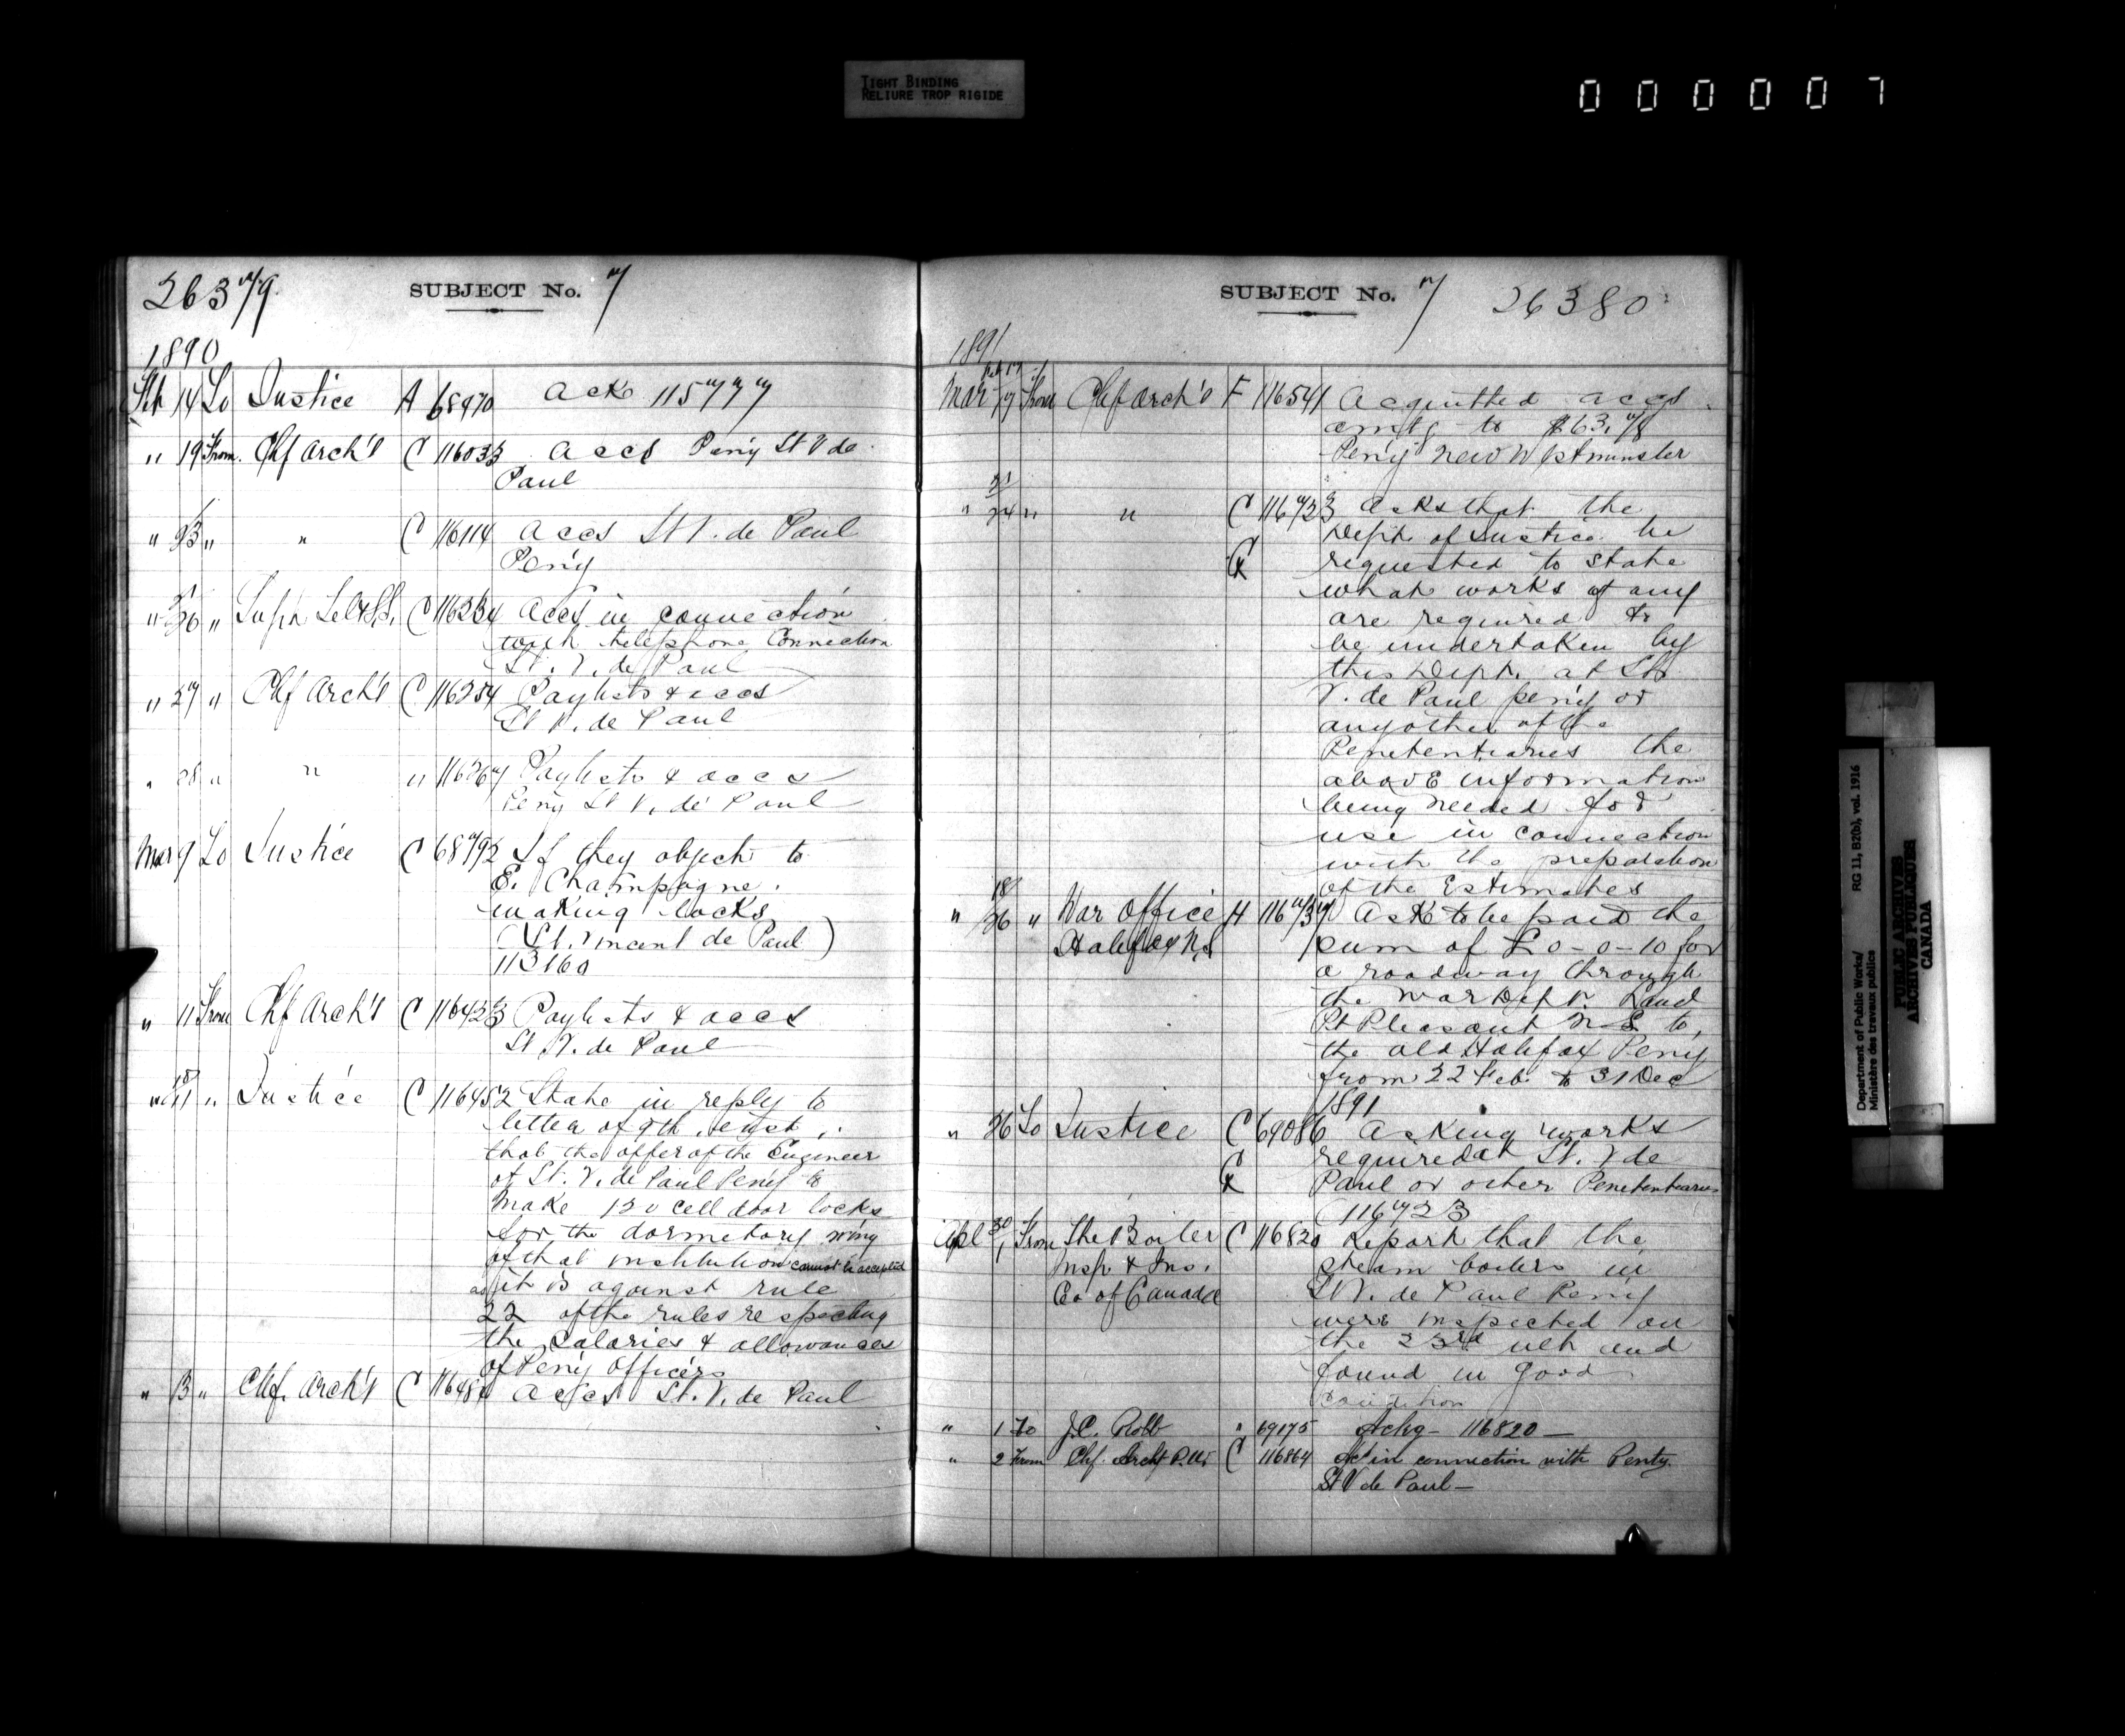 TIGHT BINDING
RELIURE TROP RIGIDE
0 0 0 0 0 7
26379
SUBJECT No. 7
1890
Feb 14 To Justice A 68970 Ack 115777
" 19 From Chf Arch't C 116033 accs Peny St V de
Paul
" 23 " " C 116114 accs St V. de Paul
Peny
" 26 " C 116234 accs in connection
with telephone Connection
St. V. de Paul
" 27 " Chf Arch't C 116254 Paylists & accs
St V. de Paul
" 28 " " " 116267 Paylists & accs
Peny St V. de Paul
Mar 9 To Justice C 68792 If they object to
E. Champagne
making locks
(St. Vincent de Paul)
113160
" 11 From Chf Arch't C 116423 Paylists & accs
St V. de Paul
" 11 " Justice C 116452 State in reply to
letter of 9th inst
that the offer of the Engineer
of St. V. de Paul Peny to
make 120 cell door locks
for the dormitory wing
of that institution cannot be accepted
as it is against rule
22 of the rules respecting
the salaries & allowances
of Peny Officers
" 13 " Chf. Arch't C accs St. V. de Paul
SUBJECT No. 7
26380
1891
Mar 17 From Chf Arch't F 116541 Acquitted accs
amtg to $63.78
Peny New Westminster
21
" 24 " " C 116723 Asks that the
Dept. of Justice be
requested to state
what works if any
are required to
be undertaken by
this Dept. at St
V. de Paul peny or
any other of the
Penetentiaries the
above information
being needed for
use in connection
with the preparation
of the Estimates
18
" 26 " War Office H 116737 Ask to be paid the
Halifax N.S sum of £0-0-10 for
a roadway through
the War Dept. Land
Pt Pleasant N.S. to
the old Halifax Peny
from 22 Feb. to 31 Dec
1891
" 26 To Justice C 69086 Asking works
required at St. V de
Paul or other Penetentiaries
116723
30
Apl 1 From The Boiler C 116820 Report that the
Insp & Ins. steam boilers in
Co of Canada St V. de Paul Peny
were inspected on
the 23rd ult and
found in good
Condition
" 1 To J.C. Robb " 69175 Ackg - 116820 —
" 2 From Chf. Archt P.W. C 116864 Act in connection with Penty.
St V de Paul —
Department of Public Works/
Ministère des travaux publics
RG 11, B2(b), vol. 1916
PUBLIC ARCHIVES
ARCHIVES PUBLIQUES
CANADA